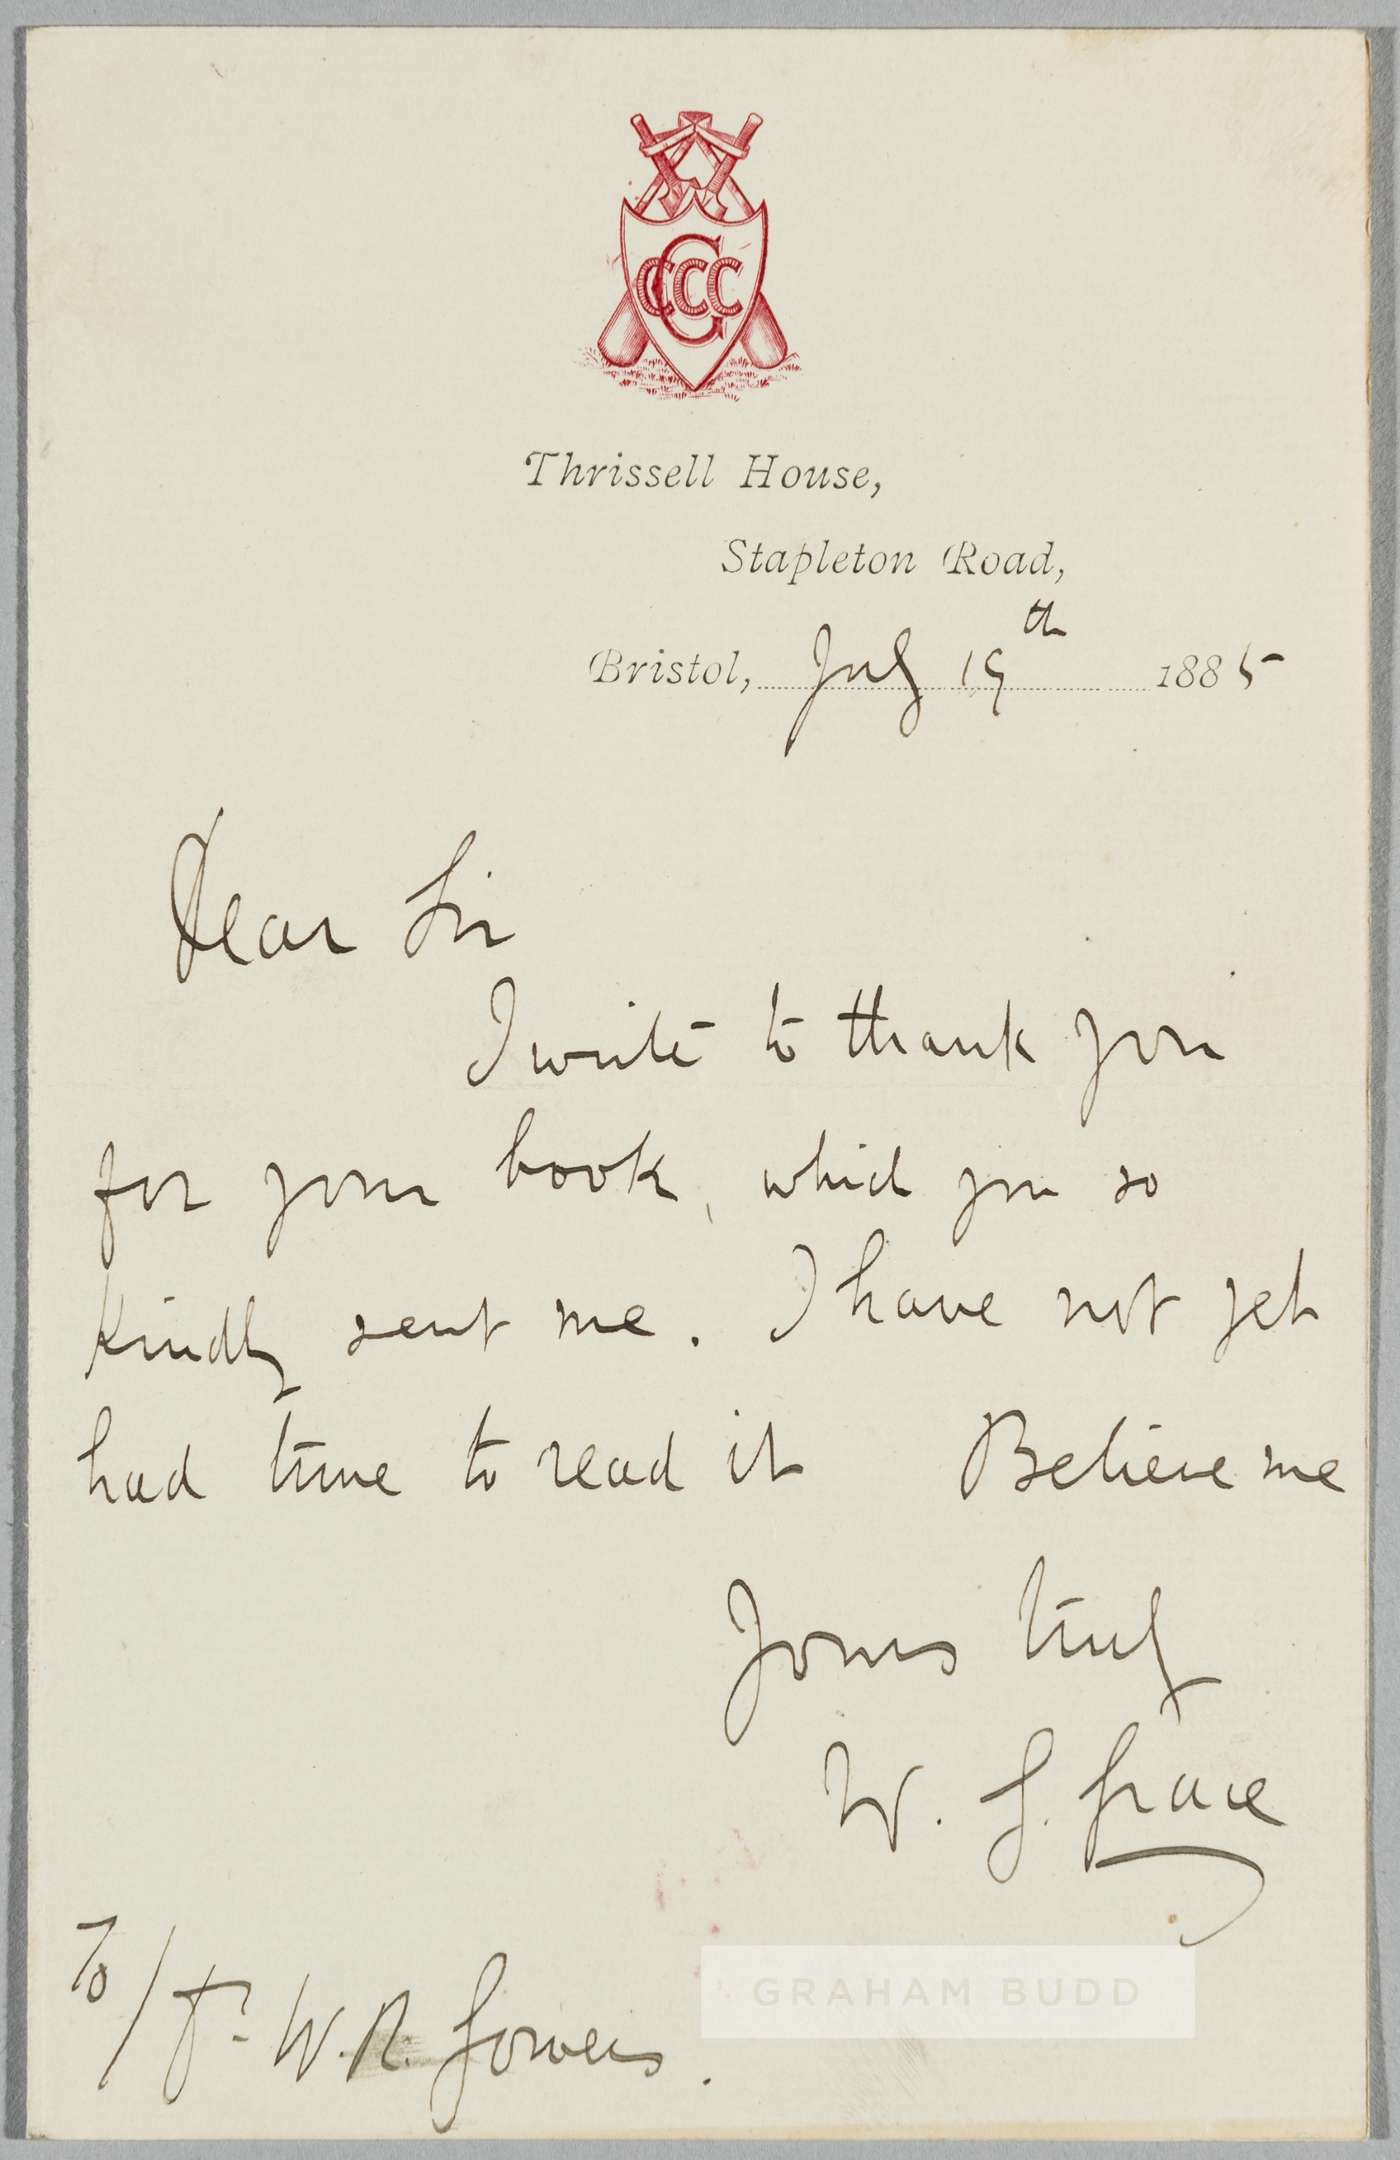 GCCC
Thrissell House,
Stapleton Road,
Bristol, July 19th 1885
Dear Sir
I write to thank you
for your book, which you so
kindly sent me. I have not yet
had time to read it Believe me
Yours truly
W. G. Grace
To/ Dr W. R. Gowers.
GRAHAM BUDD